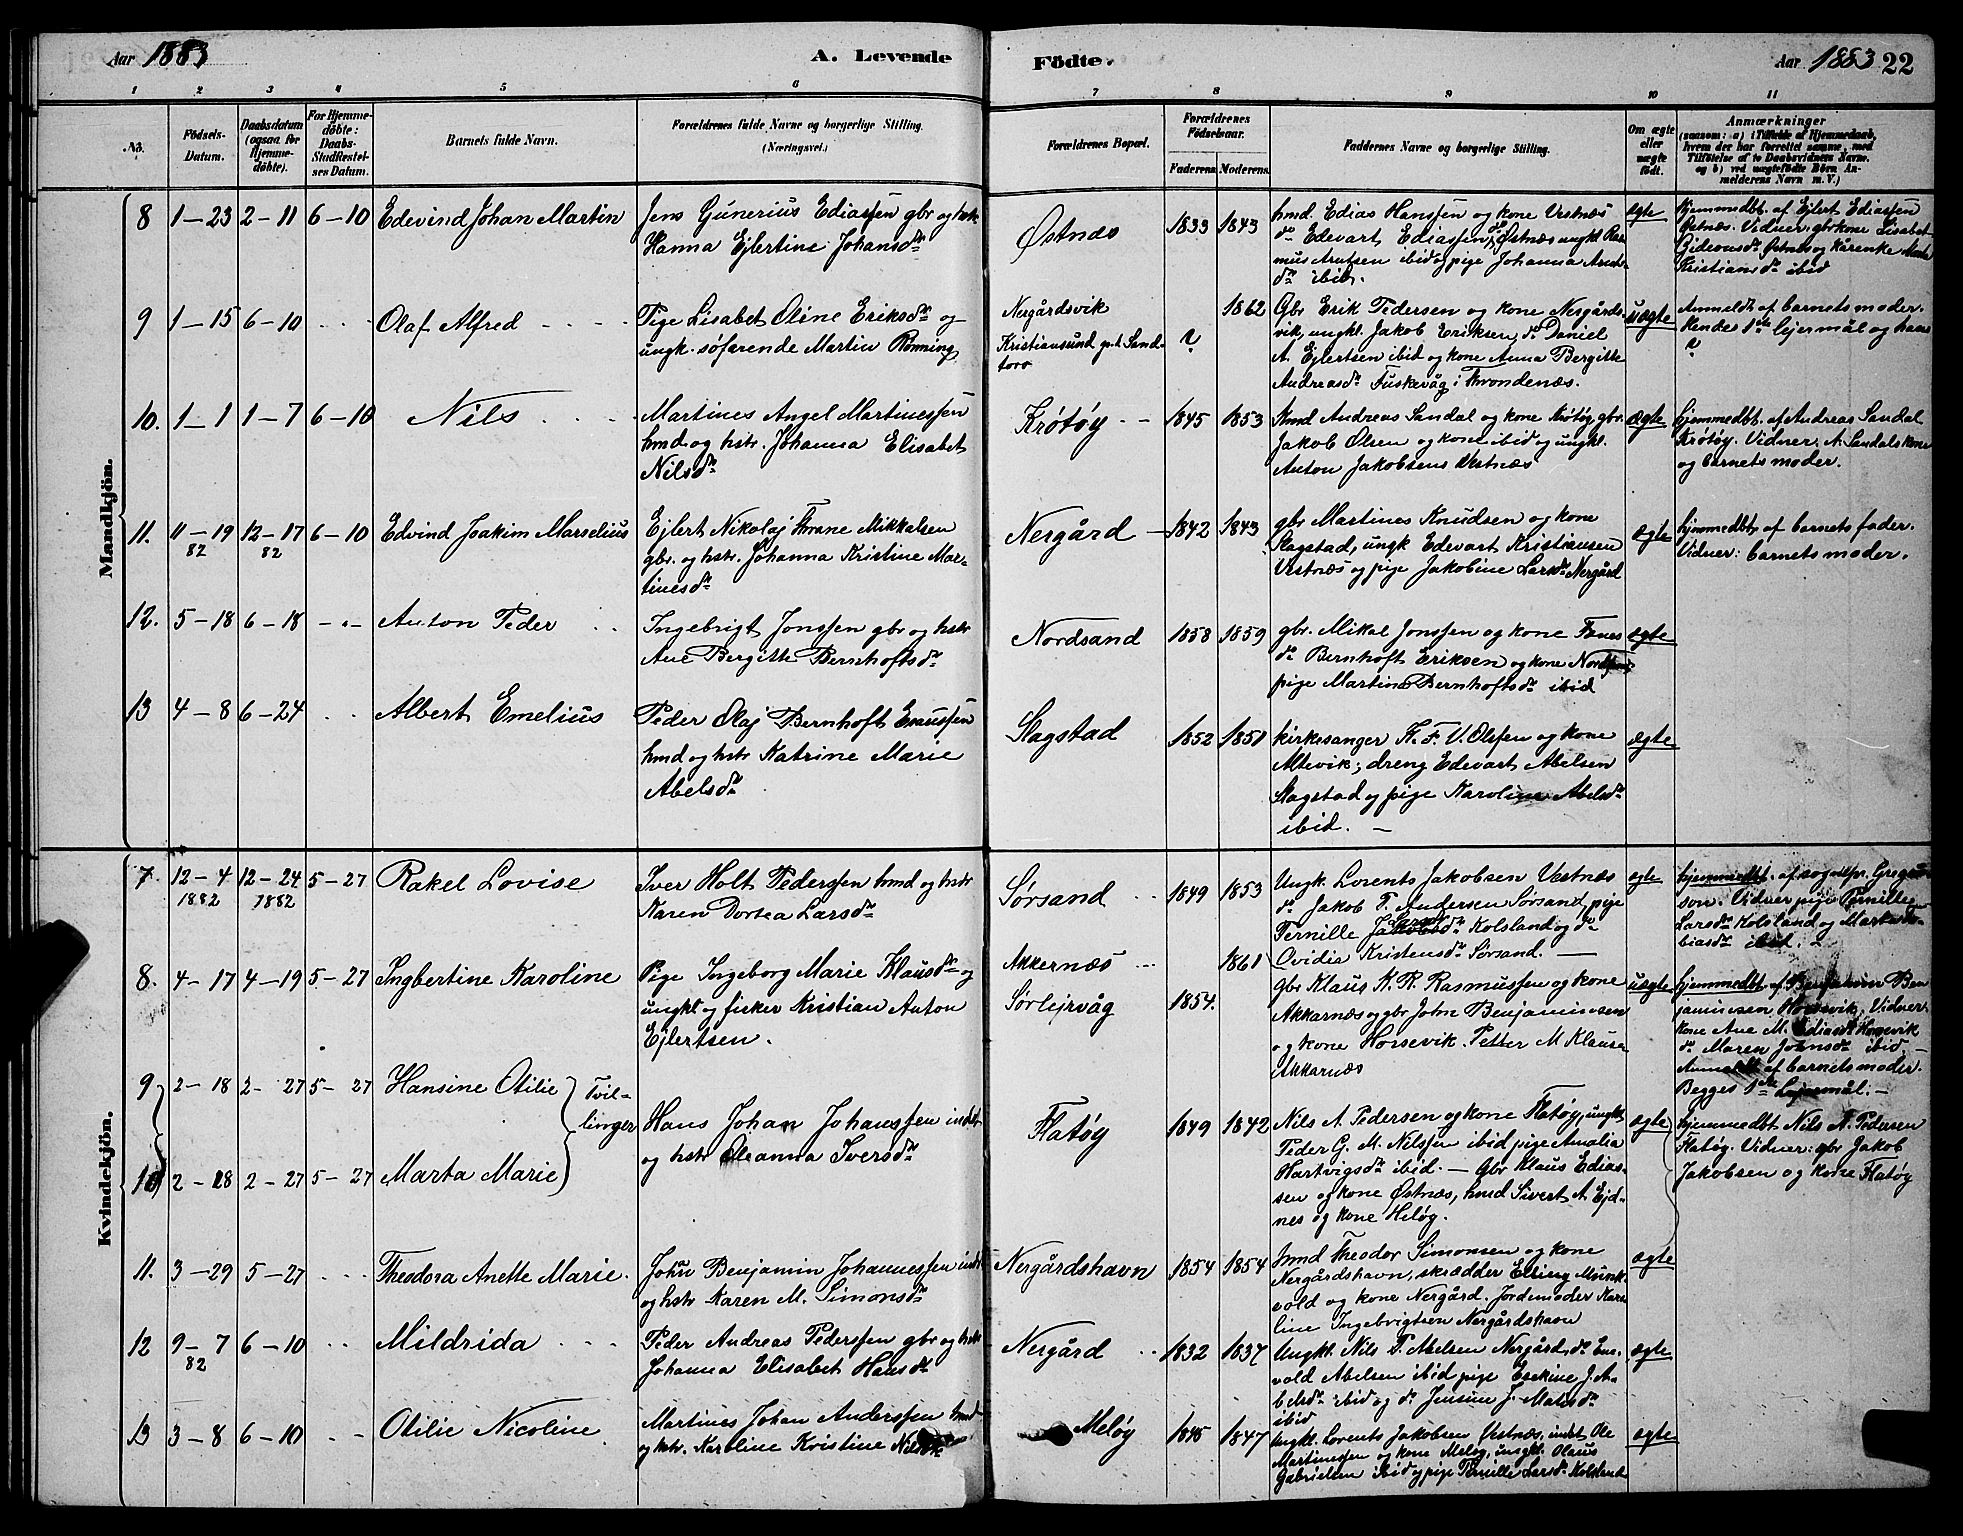 Aar 1883
A. Levende
Födte.
Aar 1883 22
1 2 3 4 5 6 7 8 9 10 11
No.
Födsels-Datum.
Daabsdatum (ogsaa for Hjemme-döbte).
For Hjemme-döbte: Daabs-Stadfæstel-ses Datum.
Barnets fulde Navn.
Forældrenes fulde Navne og borgerlige Stilling. (Næringsvei.)
Forældrenes Bopæl.
Forældrenes Födselsaar.
Faderens. Moderens.
Faddernes Navne og borgerlige Stilling.
Om ægte eller uægte födt.
Anmærkninger
(saasom: a) i Tilfælde af Hjemmedaab,
hvem der har forrettet samme, med
Tilföielse af to Daabsvidners Navne.
og b) ved uægtefödte Börn An-
melderens Navn m. V.)
Mandkjön.
8 1-23 2-11 6-10 Edevind Johan Martin
Jens Gunerius Ediassen gbr og hstr
Hanna Ejlertine Johansdtr
Østnæs 1833 1843
hmd. Edias Hanssen og kone Vestnæs
do Edevart Ediassen, Østnæs ungkl Ras-
mus Arntsen ibid og pige Johanna Arnts-
dtr ibid.
ægte
hjemmedbt. af Ejlert Ediassen
Østnæs. Vidner: gbr kone Lisabet
Gideonsdtr Østnæs og Karenke
Kristiansdtr ibid
9 1-15 6-10 Olaf Alfred
Pige Lisabet Oline Eriksdtr og
ungk. søfarende Martin Rönning
Nergårdsvik 1862
Kristiansund p.t. Sand-
torv ?
Gbr Erik Pedersen og kone Nergårds-
vik, ungkl. Jakob Eriksen, do Daniel
A. Ejlertsen ibid og kone Anna Bergitte
Andreasdtr Fuskevåg i Throndenæs.
uægte
Anmeldt af barnets moder.
Hendes 1ste lejermål og hans
?
10. 1-1 1-7 6-10 Nils
Martines Angel Martinessen
hmd og hstr. Johanna Elisabet
Nilsdtr
Krötøy 1845 1853
hmd Andreas Sandal og kone Krötøy gbr.
Jakob Olsen og kone ibid og ungkl.
Anton Jakobsens Vestnæs
ægte
hjemmedbt. af Andreas Sandal
Krötøy. Vidner: A. Sandals kone
og barnets moder.
11. 11-19 82 12-17 82 6-10 Edvind Joakim Marselius
Ejlert Nikolaj Thrane Mikkalsen
gbr. og hstr. Johanna Kristine Mar-
tinesdtr
Nergård 1842 1843
gbr Martines Knudsen og kone
Slagstad, ungk Edevart Kristiansen
Vestnæs og pige Jakobine Larsdtr Nergård
ægte
hjemmedbt, af barnets fader.
Vidner: barnets moder.
12. 5-18 6-18 Anton Peder
Ingebrigt Jonssen gbr og hstr
Ane Bergitte Bernhoftsdtr
Nordsand 1858 1859
gbr. Mikal Jonssen og kone Fanes
do Bernhoft Eriksen og kone Nordsand
pige Martine Bernhoftsdtr ibid
ægte
13 4-8 6-24 Albert Emelius
Peder Olaj Bernhoft Enaussen
hmd og hstr Katrine Marie
Abelsdtr
Slagstad 1852 1851
kirkesanger K. F. V. Olssen og kone
Altevik, dreng Edevart Abelsen
Slagstad og pige Karoline Abelsdtr
ibid.
ægte
Kvindekjön.
7. 12-4 1882 12-24 1882 5-27 Rakel Lovise
Iver Holt Pederssen hmd og hstr
Karen Dortea Larsdtr
Sørsand 1849 1853
Ungk. Lorents Jakobsen Vestnæs
do Jakob T. Andersen Sörsand, pige
Pernille Larsdtr Kolsland og do
Ovidia Kristensdtr Sørsand.
ægte
hjemmedbt. af sognepr. Greger-
son. Vidner pige Pernille
Larsdtr Kolsland og Marta To-
biasdtr ibid.
8. 4-17 4-19 5-27 Ingbertine Karoline
Pige Ingeborg Marie Klausdtr og
ungkl og fisker Kristian Anton
Ejlertsen.
Akkernæs 1861
Sørlejrvåg 1854.
gbr Klaus K. R. Rasmussen og kone
Akkarnæs og gbr John Benjaminsen
og kone Horsevik. Petter M Klausen
Akkarnæs
uægte
hjemmedbt af Benjamin Ben-
jaminsen Horsevik, Vidner:
kone Ane M. Ediasdtr Horsevik
do Maren Johnsdtr ibid.
Anmeldt af barnets moder.
Begges 1ste Lejermål.
9 2-18 2-27 5-27 Hansine Otilie
Tvil-
linger
Hans Johan Johanssen indst
og hstr Oleanna Iversdtr
10 2-18 2-27 5-27 Marta Marie
Flatøy 1849 1842
Nils A. Pedersen og kone Flatøy, ungkl
Peder G. M. Nilssen ibid pige Amalia
Hartvigsdtr ibid. - Gbr Klaus Edias-
sen og kone Østnæs, hmd Sivert A. Ejd-
nes og kone Heløy.
ægte
hjemmedbt Nils A. Pedersen
Flatøy. Vidner: gbr Jakob
Jakobsen og kone Flatøy
11. 3-29 5-27 Theodora Anette Marie.
John Benjamin Johannessen indst
og hstr Karen M. Simonsdtr
Nergårdshavn 1854 1854
hmd Theodor Simonsen og kone
Nergårdshavn, skrædder Elling Munk-
vold og kone Nergård. Jordemoder Karo-
line Ingebrigtsen Nergårdshavn
ægte
12 9-7 82 6-10 Mildrida
Peder Andreas Pederssen gbr og hstr
Johanna Elisabet Hansdtr
Nergård 1832 1837
Ungkl. Nils P. Abelsen Nergård, do En-
vold Abelsen ibid pige Eskine J. A-
belsdtr ibid og do Jensine J. Matisdtr
ibid
ægte
13 3-8 6-10 Otilie Nicoline
Martines Johan Anderssen hmd
og hstr. Karoline Kristine Nilsdtr
Meløy 1845 1847
Ungkl. Lorents Jakobsen Vestnæs, indst Ole
Martinussen og kone Meløy, ungkl. Olaus
Gabrielsen ibid og pige Pernille Larsdtr Kolsland
ægte